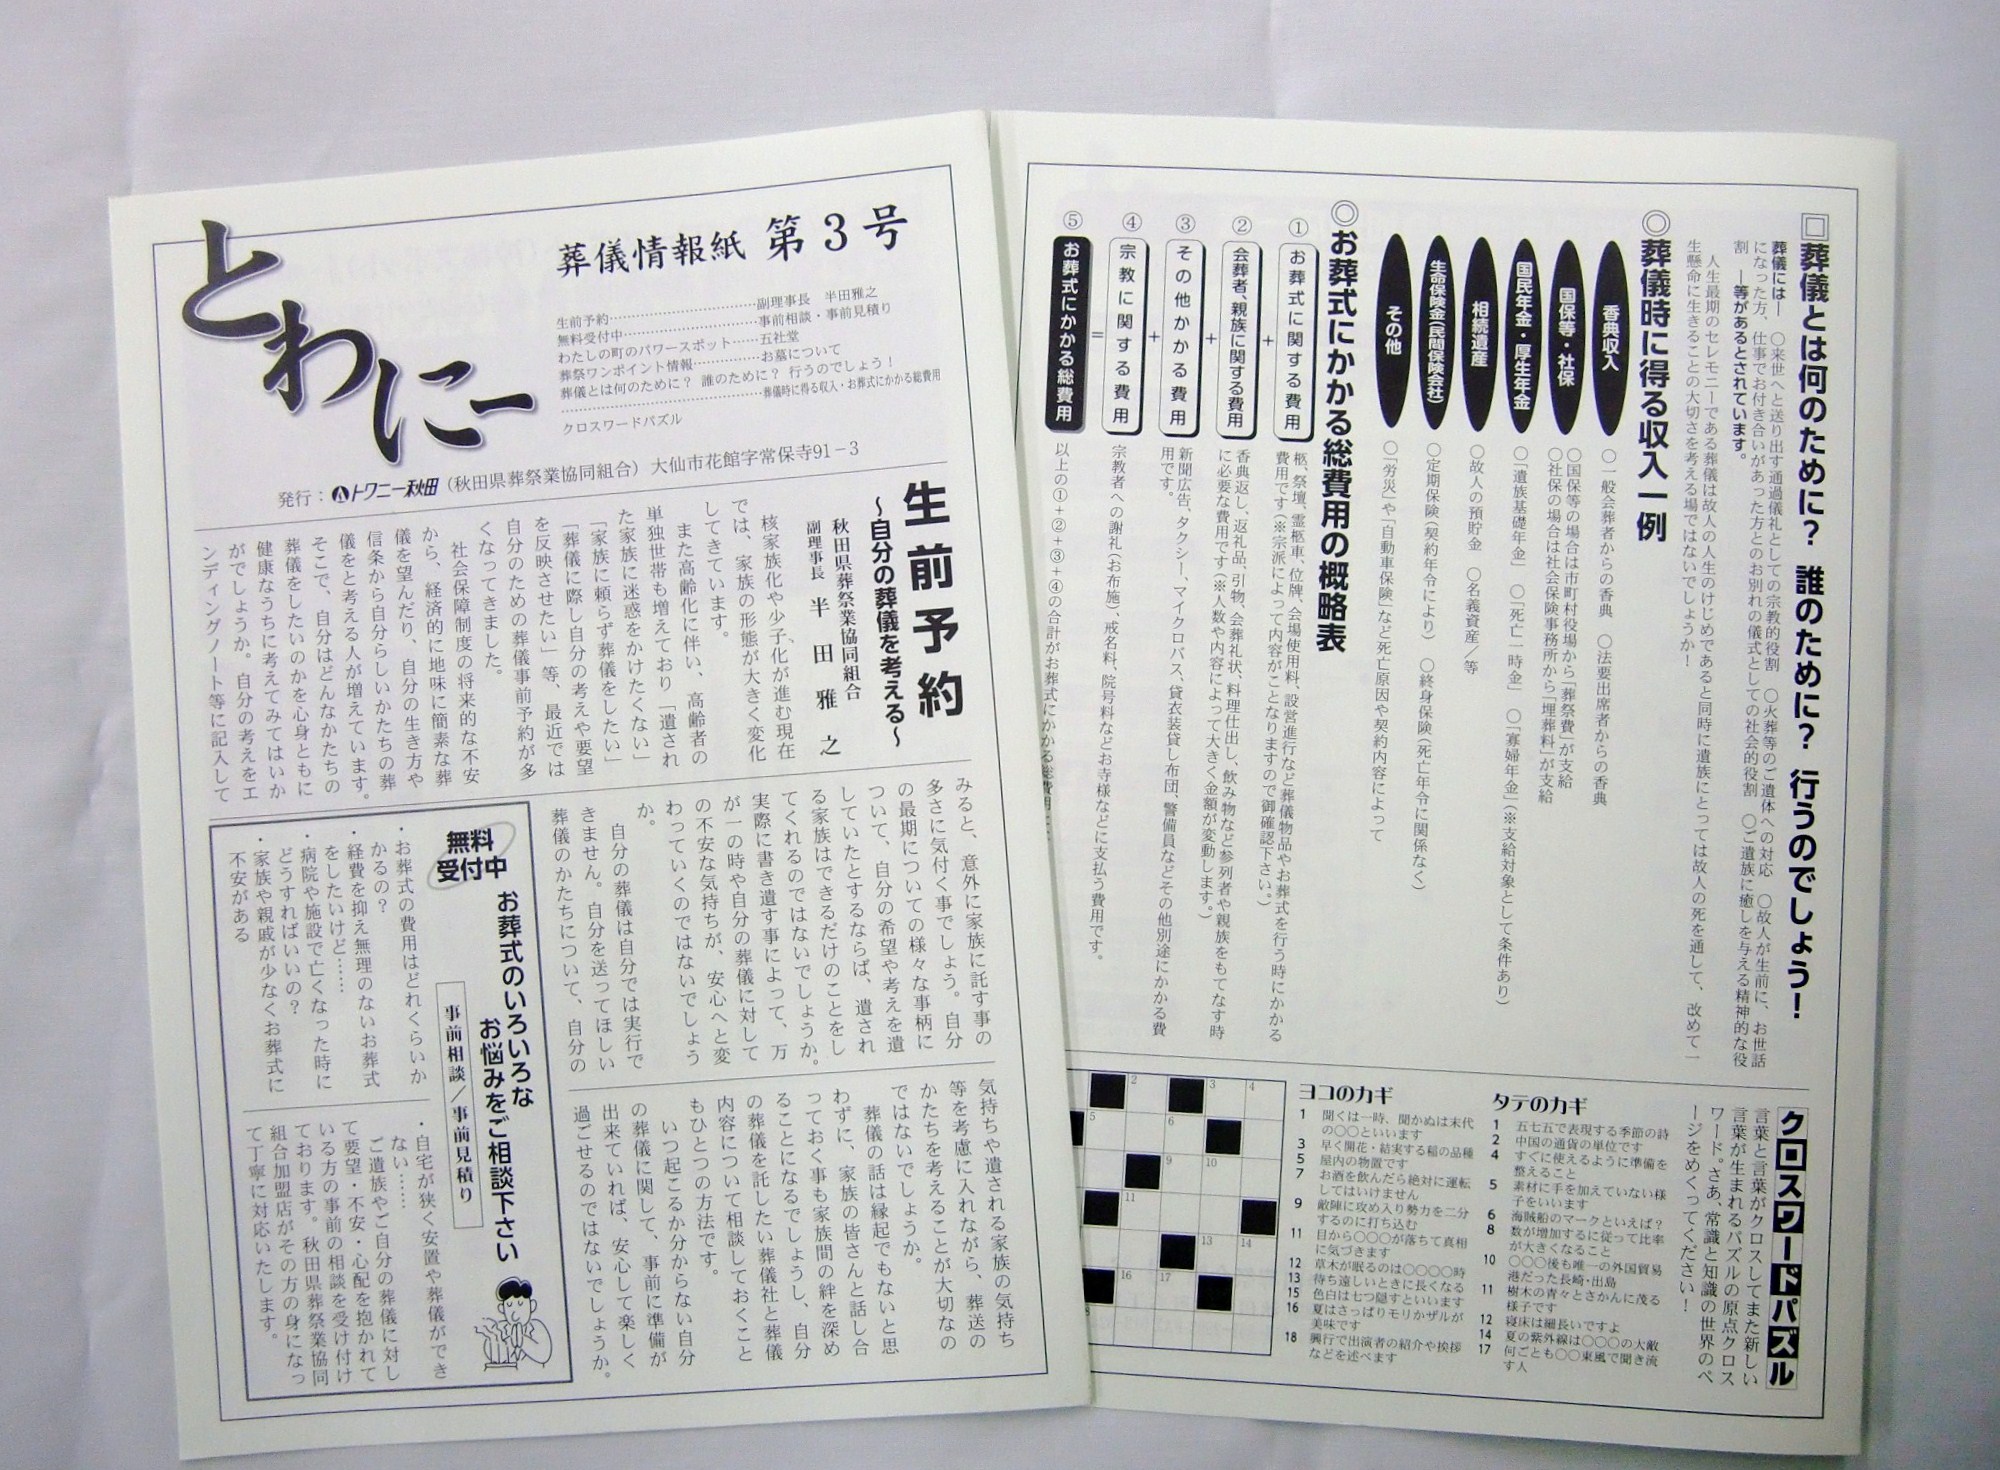 とわにー
葬儀情報紙 第3号
生前予約……………………………副理事長 半田雅之
無料受付中…………………………事前相談・事前見積り
わたしの町のパワースポット……五社堂
葬祭ワンポイント情報……………お墓について
葬儀とは何のために? 誰のために? 行うのでしょう!
……………………………葬儀時に得る収入・お葬式にかかる総費用
クロスワードパズル
発行:トワニー秋田(秋田県葬祭業協同組合)大仙市花館字常保寺91-3
生前予約
~自分の葬儀を考える~
秋田県葬祭業協同組合
副理事長 半田雅之
核家族化や少子化が進む現在
では、家族の形態が大きく変化
してきています。
また高齢化に伴い、高齢者の
単独世帯も増えており「遺され
た家族に迷惑をかけたくない」
「家族に頼らず葬儀をしたい」
「葬儀に際し自分の考えや要望
を反映させたい」等、最近では
自分のための葬儀事前予約が多
くなってきました。
社会保障制度の将来的な不安
から、経済的に地味に簡素な葬
儀を望んだり、自分の生き方や
信条から自分らしいかたちの葬
儀をと考える人が増えています。
そこで、自分はどんなかたちの
葬儀をしたいのかを心身ともに
健康なうちに考えてみてはいか
がでしょうか。自分の考えをエ
ンディングノート等に記入して
みると、意外に家族に託す事の
多さに気付く事でしょう。自分
の最期についての様々な事柄に
ついて、自分の希望や考えを遺
していたとするならば、遺され
る家族はできるだけのことをし
てくれるのではないでしょうか。
実際に書き遺す事によって、万
が一の時や自分の葬儀に対して
の不安な気持ちが、安心へと変
わっていくのではないでしょう
か。
自分の葬儀は自分では実行で
きません。自分を送ってほしい
葬儀のかたちについて、自分の
気持ちや遺される家族の気持ち
等を考慮に入れながら、葬送の
かたちを考えることが大切なの
ではないでしょうか。
葬儀の話は縁起でもないと思
わずに、家族の皆さんと話し合
っておく事も家族間の絆を深め
ることになるでしょうし、自分
の葬儀を託したい葬儀社と葬儀
内容について相談しておくこと
もひとつの方法です。
いつ起こるか分からない自分
の葬儀に関して、事前に準備が
出来ていれば、安心して楽しく
過ごせるのではないでしょうか。
無料
受付中
お葬式のいろいろな
お悩みをご相談下さい
事前相談/事前見積り
・お葬式の費用はどれくらいか
かるの?
・経費を抑え無理のないお葬式
をしたいけど……
・病院や施設で亡くなった時に
どうすればいいの?
・家族や親戚が少なくお葬式に
不安がある
・自宅が狭く安置や葬儀ができ
ない……
ご遺族やご自分の葬儀に対し
て要望・不安・心配を抱かれて
いる方の事前の相談を受け付け
ております。秋田県葬祭業協同
組合加盟店がその方の身になっ
て丁寧に対応いたします。
□葬儀とは何のために? 誰のために? 行うのでしょう!
葬儀には— ○来世へと送り出す通過儀礼としての宗教的役割 ○火葬等のご遺体への対応 ○故人が生前に、お世話
になった方、仕事でお付き合いがあった方とのお別れの儀式としての社会的役割 ○ご遺族に癒しを与える精神的な役
割 —等があるとされています。
人生最期のセレモニーである葬儀は故人の人生のけじめであると同時に遺族にとっては故人の死を通して、改めて一
生懸命に生きることの大切さを考える場ではないでしょうか!
◎葬儀時に得る収入一例
香典収入
○一般会葬者からの香典 ○法要出席者からの香典
国保等・社保
○国保等の場合は市町村役場から「葬祭費」が支給
○社保の場合は社会保険事務所から「埋葬料」が支給
国民年金・厚生年金
○「遺族基礎年金」 ○「死亡一時金」 ○「寡婦年金」(※支給対象として条件あり)
相続遺産
○故人の預貯金 ○名義資産/等
生命保険金(民間保険会社)
○定期保険(契約年令により) ○終身保険(死亡年令に関係なく)
その他
○「労災」や「自動車保険」など死亡原因や契約内容によって
◎お葬式にかかる総費用の概略表
① お葬式に関する費用
柩、祭壇、霊柩車、位牌、会場使用料、設営進行など葬儀物品やお葬式を行う時にかかる
費用です(※宗派によって内容がことなりますので御確認下さい。)
+
② 会葬者、親族に関する費用
香典返し、返礼品、引物、会葬礼状、料理仕出し、飲み物など参列者や親族をもてなす時
に必要な費用です(※人数や内容によって大きく金額が変動します。)
+
③ その他かかる費用
新聞広告、タクシー、マイクロバス、貸衣装貸し布団、警備員などその他別途にかかる費
用です。
+
④ 宗教に関する費用
宗教者への謝礼(お布施)、戒名料、院号料などお寺様などに支払う費用です。
=
⑤ お葬式にかかる総費用
以上の①+②+③+④の合計がお葬式にかかる総費用
クロスワードパズル
言葉と言葉がクロスしてまた新しい
言葉が生まれるパズルの原点クロス
ワード。さあ、常識と知識の世界のペ
ージをめくってください!
タテのカギ
1 五七五で表現する季節の詩
2 中国の通貨の単位です
4 すぐに使えるように準備を
整えること
5 素材に手を加えていない様
子をいいます
6 海賊船のマークといえば?
8 数が増加するに従って比率
が大きくなること
10 ○○○後も唯一の外国貿易
港だった長崎・出島
11 樹木の青々とさかんに茂る
様子です
12 寝床は細長いですよ
14 夏の紫外線は○○○の大敵
17 何ごとも○○東風で聞き流
す人
ヨコのカギ
1 聞くは一時、聞かぬは末代
の○○といいます
3 早く開花・結実する稲の品種
5 屋内の物置です
7 お酒を飲んだら絶対に運転
してはいけません
9 敵陣に攻め入り勢力を二分
するのに打ち込む
11 目から○○○が落ちて真相
に気づきます
12 草木が眠るのは○○○○時
13 待ち遠しいときに長くなる
15 色白は七つ隠すといいます
16 夏はさっぱりモリかザルが
美味です
18 興行で出演者の紹介や挨拶
などを述べます
2 3 4
5 6
9 10
11
13 14
16 17